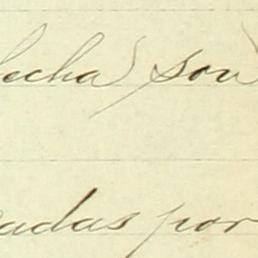 fecha son
cadas por